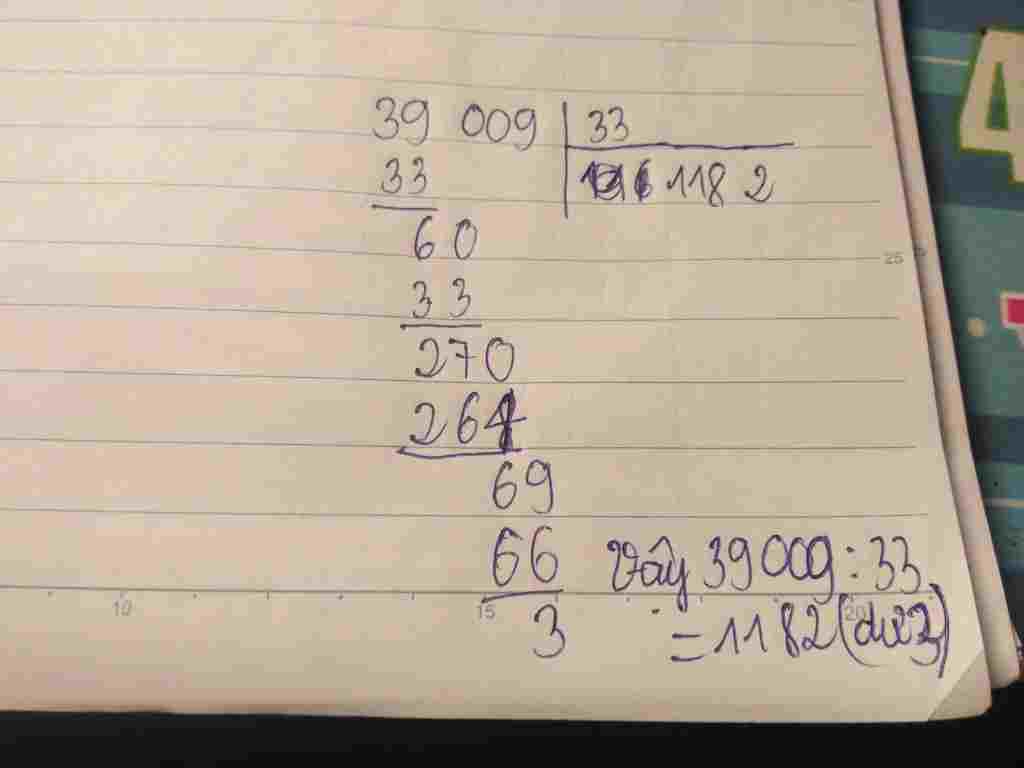 39 009 33
33 118 2
60
33
270
264
69
66 Vậy 39009 : 33
3 = 1182 (dư 3)
25
10 15 20
4